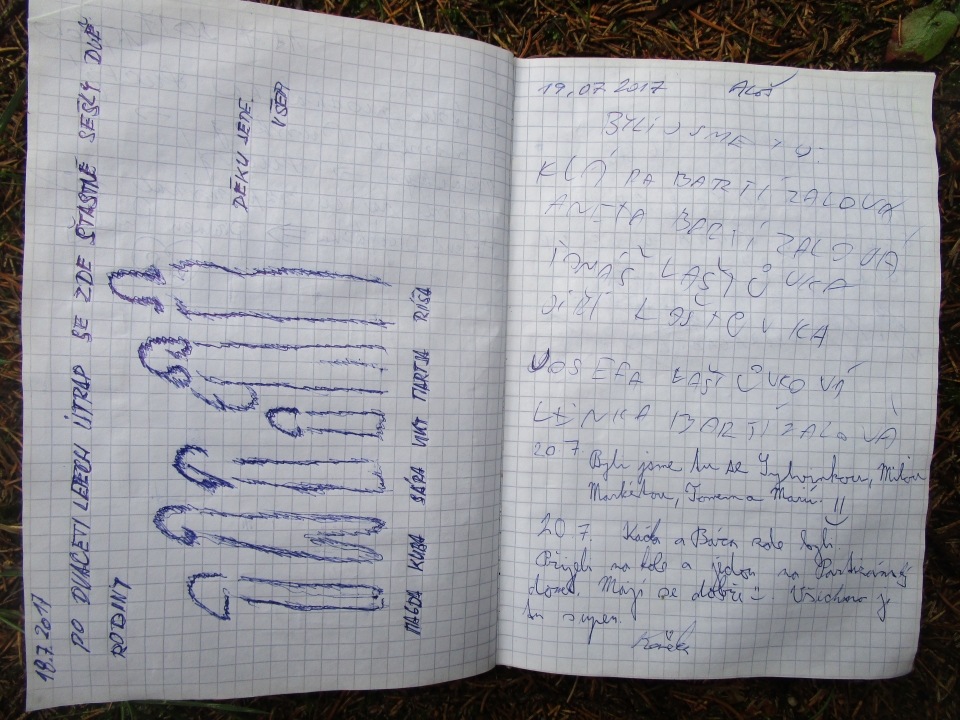 18.7.2017
PO DVACETI LETECH ÚTRAP SE ZDE ŠŤASTNĚ SEŠLY DVĚ
RODINY
DĚKUJEME
VŠEM
MAGDA KUBA SÁRA VÍT MARTJA RÍŠA
19.07.2017 Ahoj
BYLI JSME TU:
KLÁRA BARTÍZALOVÁ
ANETA BARTÍZALOVÁ
TOMÁŠ LAŠTŮVKA
JIŘÍ LAŠTŮVKA
JOSEFA LAŠTŮVKOVÁ
LENKA BARTÍZALOVÁ
20 7
Byli jsme tu se
Markétou, Tomem a
20 7. Káča a Bára zde byli.
Přijeli na kole a jedou na
domů. Mají se dobře. Všichni
tu super.